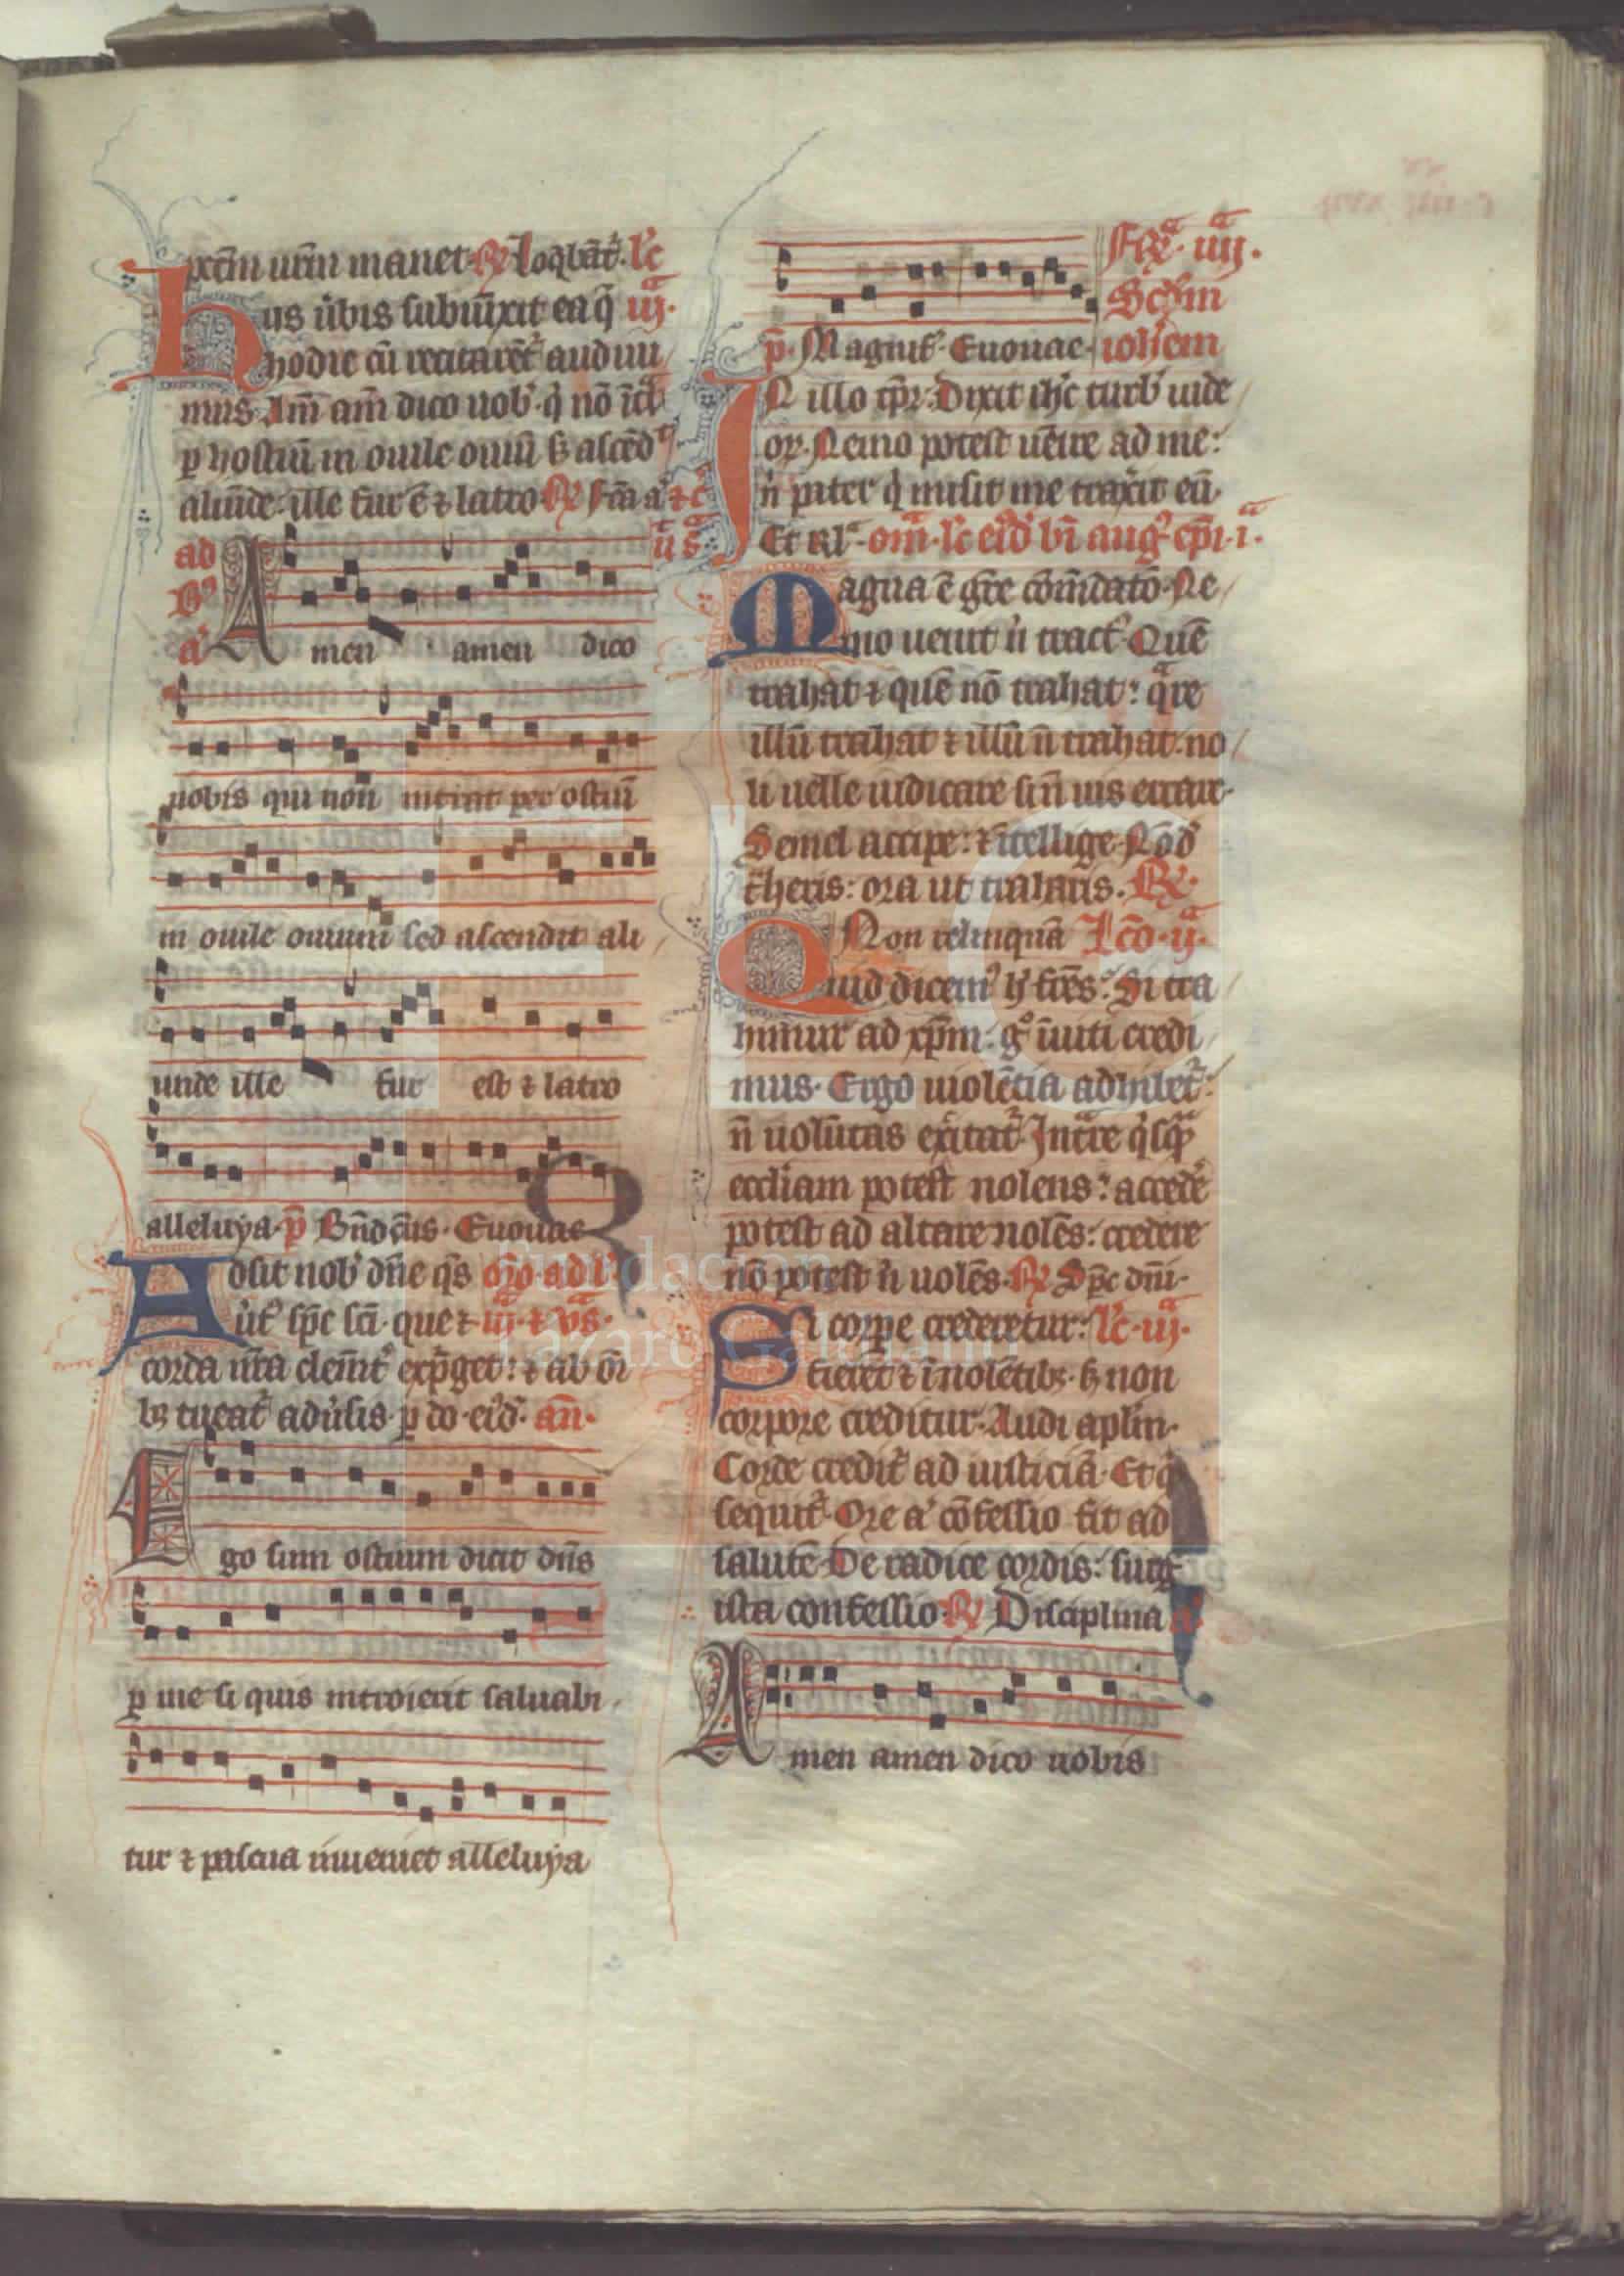 pctm urm manet. ℟ Loqbāt᷑. lc̄
hus ūbis subiūxit ea q̄ iij.
hodie cū recitarēt᷑ audiui
mus. Am̄ am̄ dico uob᷑. q̇ nō īt̄t
p hostiū in ouile ouiū sꝫ ascēdꝰ
aliūde. ille fur ē ⁊ latro. ℟ Fcā aͥ ⁊ cͣ
ad ū s̄
Bꝰ
aͥ Amen amen dico
uobis qui non intrat per ostiū
in ouile ouium sed ascendit ali
unde ille fur est ⁊ latro
alleluya. p̄ Bn̄dcūs. Euouae
Adsit nob᷑ dn̄e q̄s or̄o. ad i᷑
ūt᷑ sp̄c sc̄i. que ⁊ iij. ⁊ v̄s.
corda nr̄a clem̄t᷑ exp̄get: ⁊ ab ōi
bꝫ tueat᷑ aduͥsis. p do. eiͥd᷑. an̄.
Ego sum ostium dicit dn̄s
p me si quis introierit saluabi
tur ⁊ pascua inueniet alleluya
Fr̄ᵃ. iiijᵃ.
Scḋm
p̄. Magnif᷑. Euouae. ioh᷑em
In illo tp̄r. Dixit ihc̄ turb᷑ iude
oꝝ. Nemo potest uēire ad me:
n̄ pater q̇ misit me traxͥit eū.
Et rlᷓ. omͣ. lc̄ eiͥd᷑ bi̅ aug᷑ ep̄i. iᵃ.
Magna ē gr̄e cōm̄datō. Ne
mo uenit n̄ tract᷑. Quē
trahat ⁊ quē nō trahat: qᷓre
illū trahat ⁊ illū n̄ trahat. no
li uelle iudicare si n̄ uis errare.
Semel accipe: ⁊ ītellige. Nōd᷑
t̄heris: ora ut traharis. ℟.
Non relinquā Lc̄o. ijᵃ.
Quid dicemꝰ hͥ fr̄es: Si tra
himur ad xp̄m: gͦ īuiti credi
mus. Ergo uiolētia adhibet᷑:
n̄ uolūtas exͨitat᷑. Intᷓre qͥsqᷓ
eccl̄iam potest nolens: accedē
potest ad altare nolēs: credere
nō potest n̄ uolēs. ℟ Sp̄c dn̄i.
Si corpe crederetur: lc̄. iijᵃ.
fieret ⁊ ī nolētibꝫ. sꝫ non
corpore creditur. Audi apl̄m.
Corde credit᷑ ad iusticiā. Et qͥ
sequit᷑. Ore aͥ cōfessio fit ad
salutē. De radice cordis: surg᷑
ista confessio. ℟ Disciplina aͥ
Amen amen dico uobis
Fundación
Lázaro Galdiano